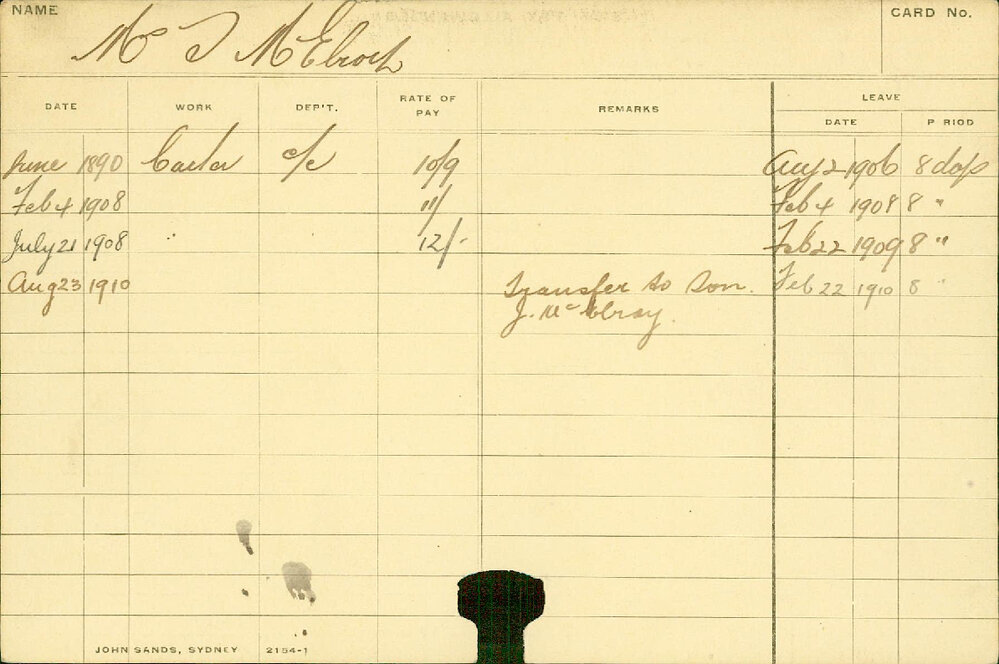 NAME
CARD No.
Mrs J McElroy
DATE WORK DEP'T. RATE OF PAY REMARKS LEAVE
DATE P RIOD
June 1890 Carter c/c 10/9 Aug 2 1906 8 days
Feb 4 1908 11/ Feb 4 1908 8 "
July 21 1908 12/- Feb 22 1909 8 "
Aug 23 1910 Transfer to Son. Feb 22 1910 8 "
J. McElroy.
JOHN SANDS, SYDNEY 2154-1